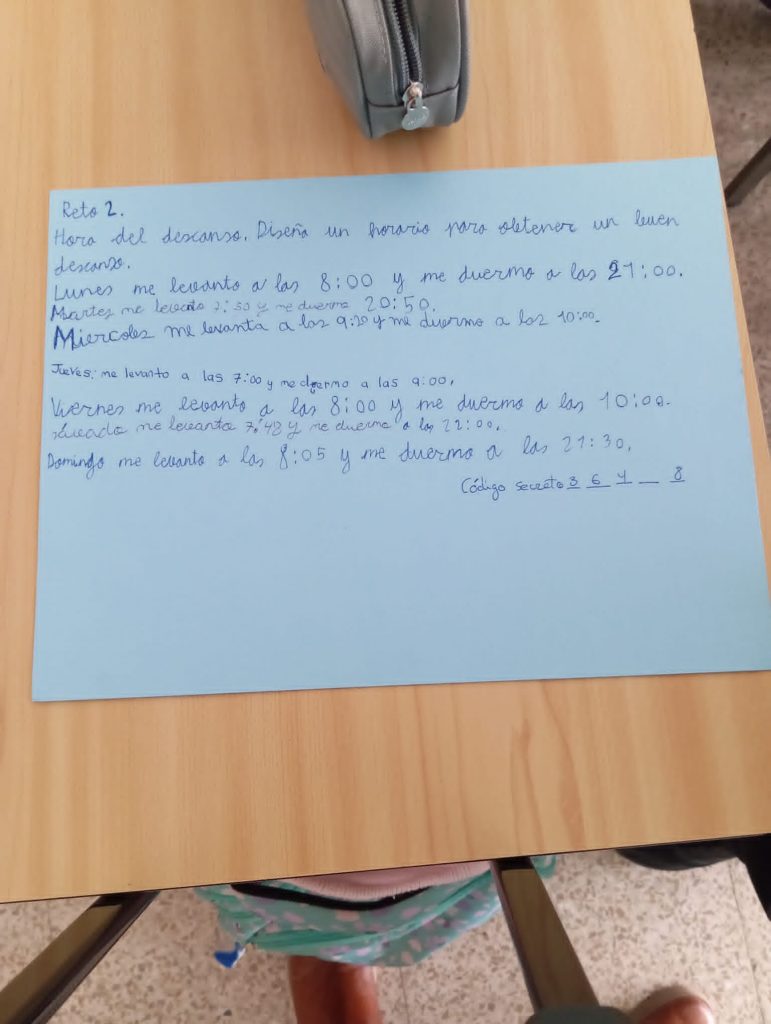 Reto 2.
Hora del descanso. Diseña un horario para obtener un buen
descanso.
Lunes me levanto a las 8:00 y me duermo a las 21:00.
Martes me levanto 7:30 y me duermo 20:50.
Miercoles me levanta a las 9:20 y me duermo a las 10:00.
Jueves: me levanto a las 7:00 y me duermo a las 9:00.
Viernes me levanto a las 8:00 y me duermo a las 10:00.
me levanto 7:48 y me duermo a las 22:00.
Domingo me levanto a las 8:05 y me duermo a las 21:30.
Código secreto 3 6 Y _ 8